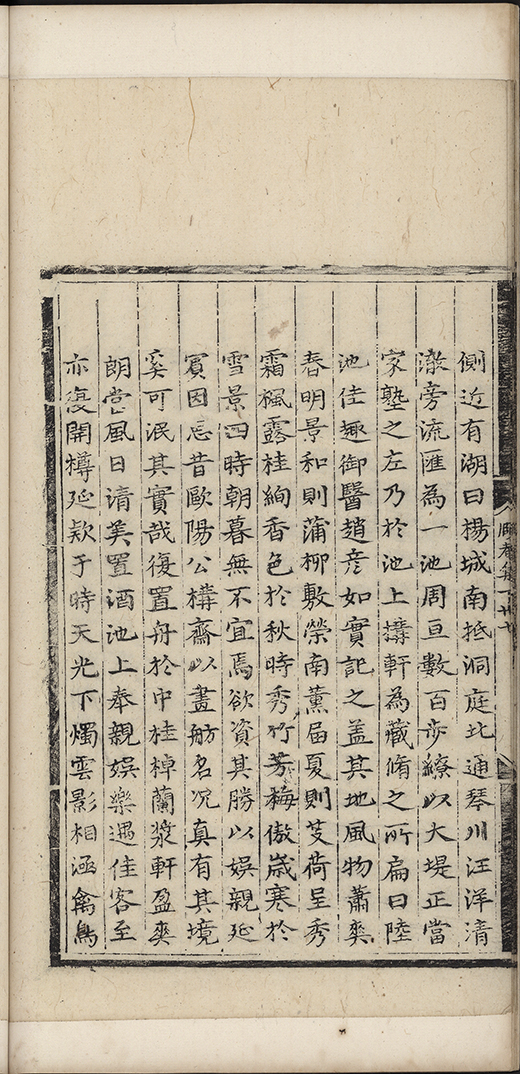 側近有湖曰楊城南抵洞庭北通琴川汪洋清
澈旁流匯為一池周亘數百步繚以大堤正當
家塾之左乃於池上搆軒為藏脩之所扁曰陸
池佳趣御醫趙彦如實記之盖其地風物蕭爽
春明景和則蒲柳敷榮南薰届夏則芰荷呈秀
霜楓露桂絢香色於秋時秀竹芳梅傲歲寒於
雪景四時朝暮無不宜焉欲資其勝以娛親延
賓因忌昔歐陽公構齋以畫舫名况真有其境
奚可泯其實哉復置舟於中桂棹蘭漿軒盈爽
朗當風日清美置酒池上奉親娛樂遇佳客至
亦復開樽延款于時天光下燭雲影相涵禽鳥